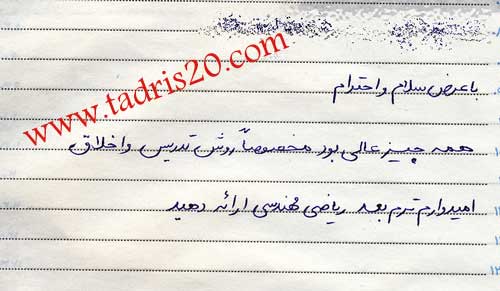 www.tadris20.com
با عرض سلام و احترام
همه چیز عالی بود مخصوصاً روش تدریس و اخلاق
امیدوارم ترم بعد ریاضی مهندسی ارائه دهید